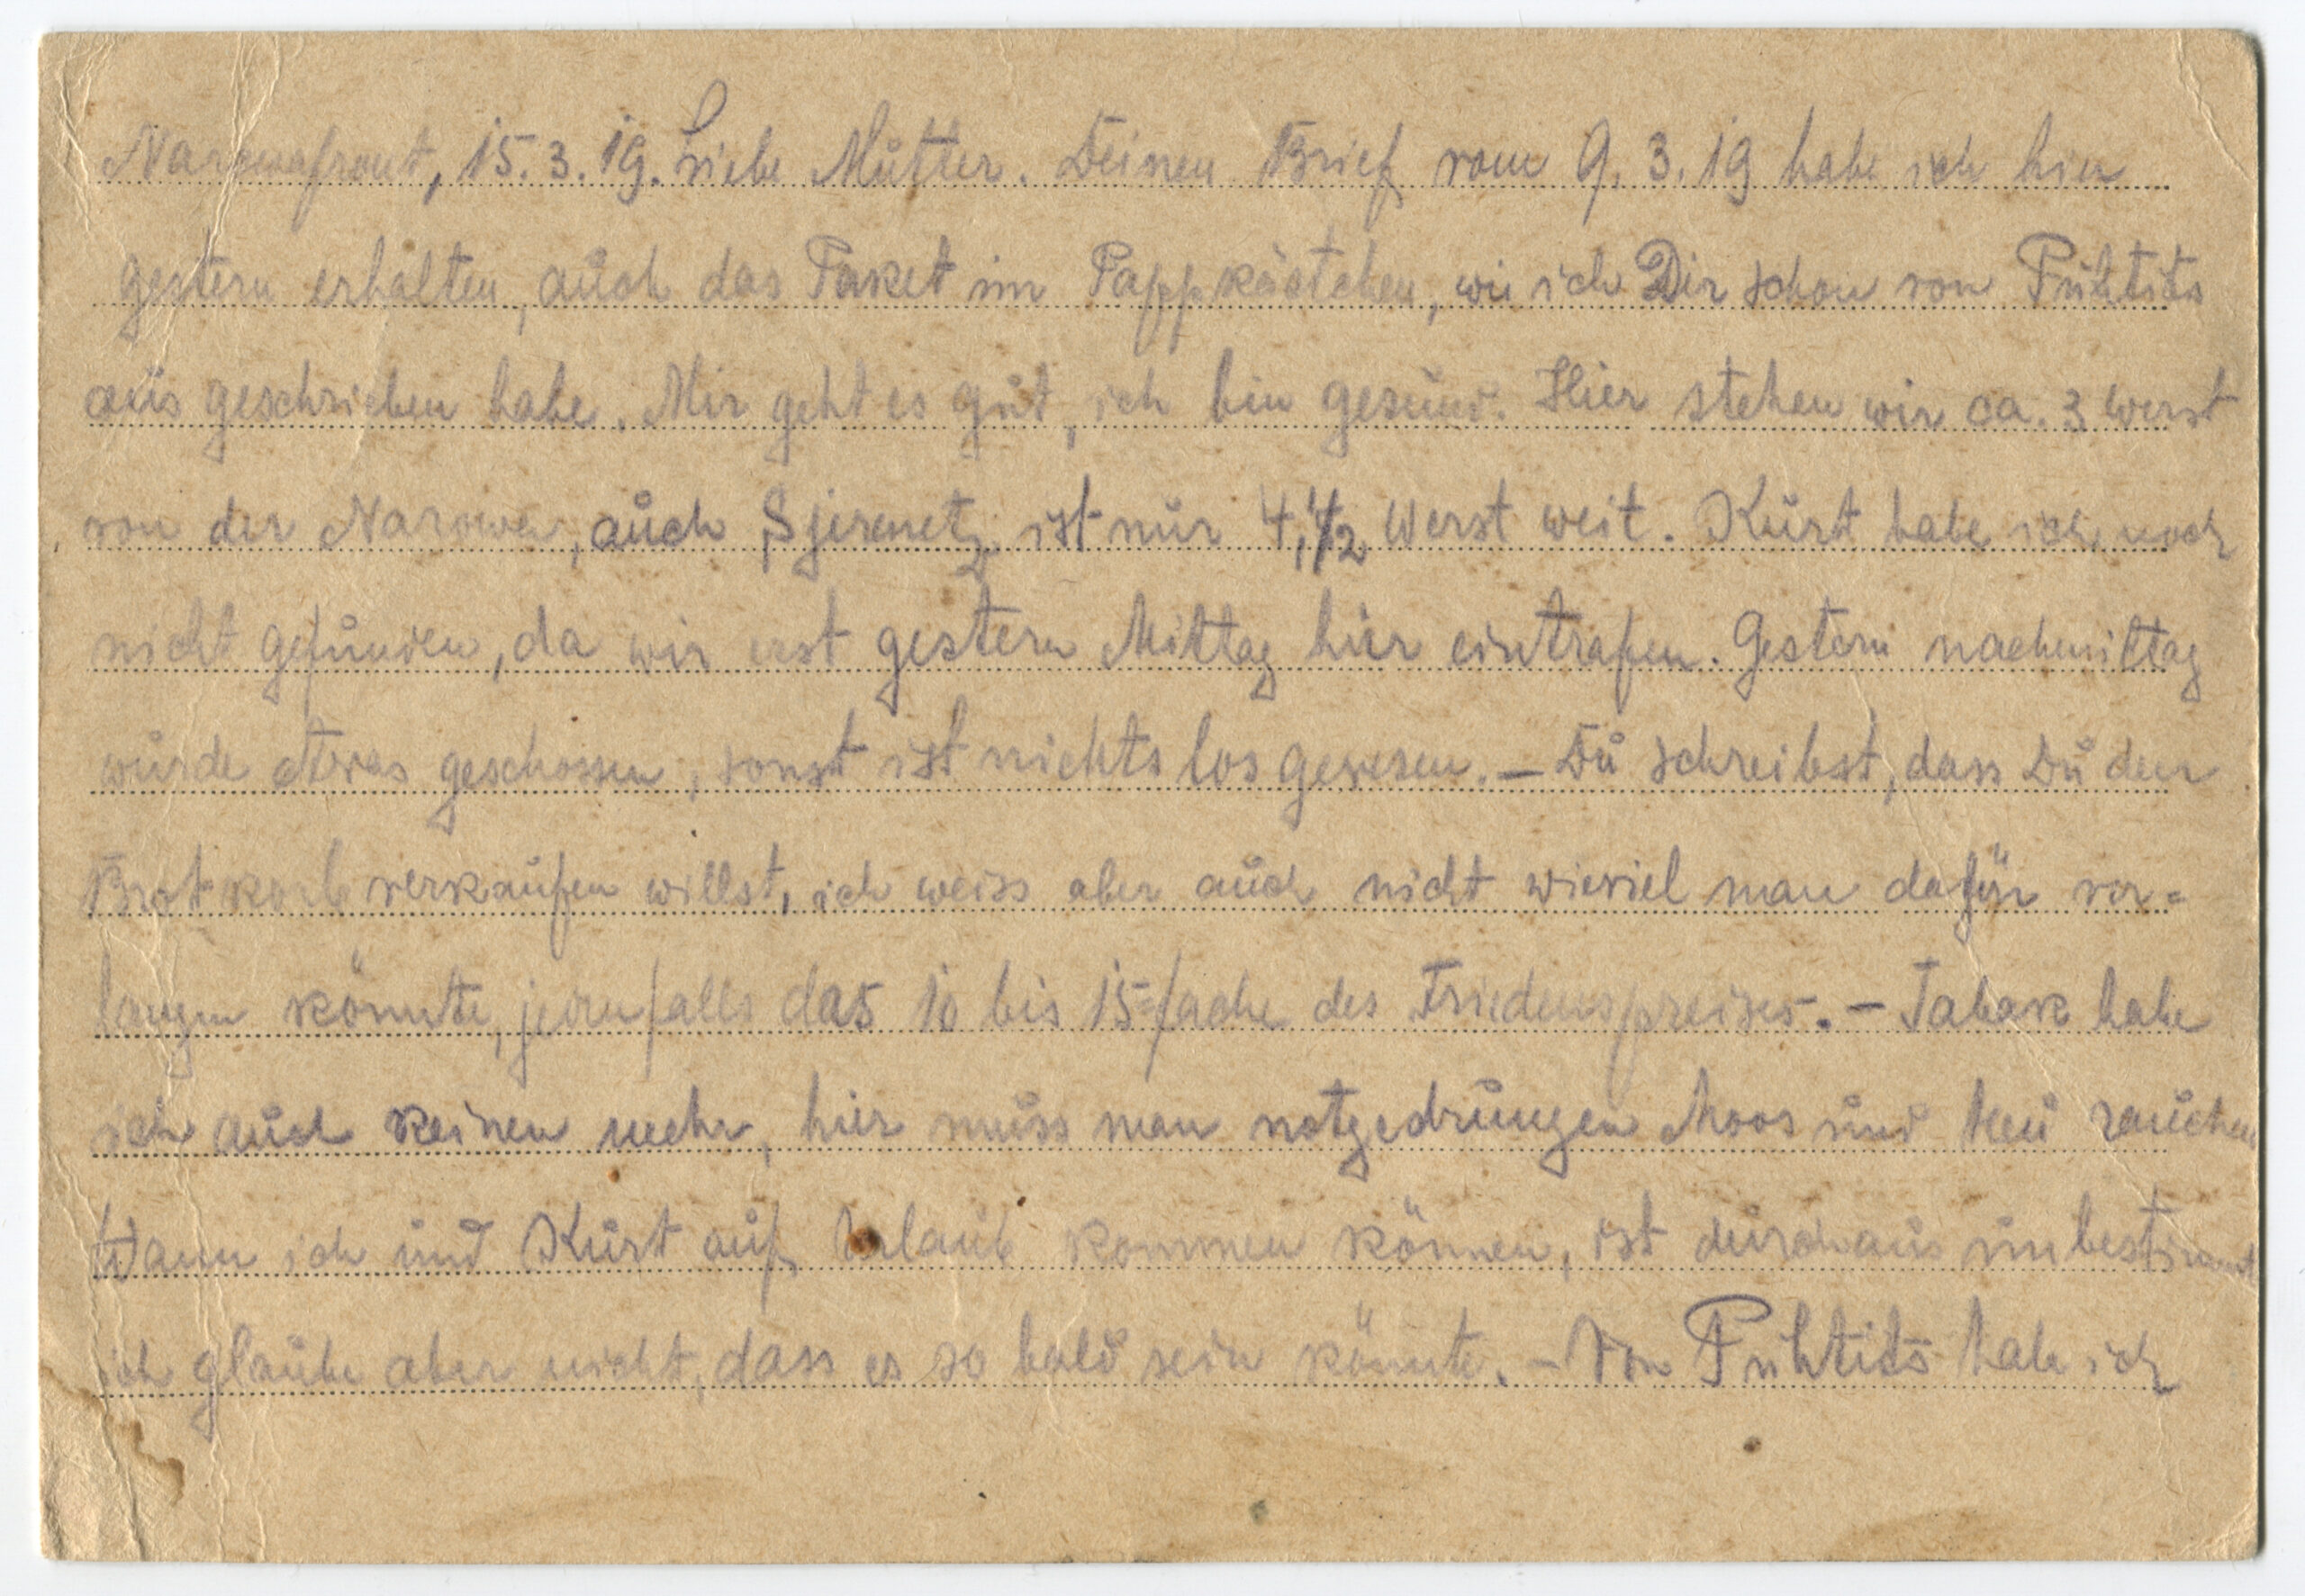 Narowafront, 15.3.19. Liebe Mutter. Deinen Brief vom 9.3.19 habe ich hier
gestern erhalten, auch das Paket im Pappkästchen, wie ich Dir schon von Pühtits
aus geschrieben habe. Mir geht es gut, ich bin gesund. Hier stehen wir ca. 3 Werst
von der Narowa, auch Sjerenetz ist nur 4,1/2 Werst weit. Kurt habe ich noch
nicht gefunden, da wir erst gestern Mittag hier eintrafen. Gestern nachmittag
wurde etwas geschossen, sonst ist nichts los gewesen. – Du schreibst, dass Du den
Brotkorb verkaufen willst, ich weiss aber auch nicht wieviel man dafür ver=
langen könnte, jedenfalls das 10 bis 15=fache des Friedenspreises. – Tabak habe
ich auch keinen mehr, hier muss man notgedrungen Moos und Heu rauchen
Wann ich und Kurt auf Urlaub kommen können, ist durchaus unbestimmt
ich glaube aber nicht, dass es so bald sein könnte. – Von Pühtits habe ich